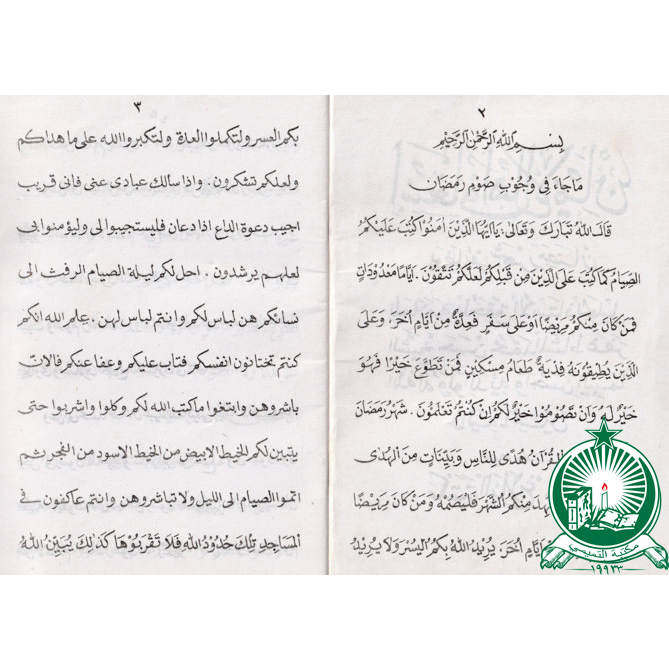 ٢
بِسْمِ اللهِ الرَّحْمٰنِ الرَّحِيْمِ
مَا جَاءَ فِى وُجُوْبِ صَوْمِ رَمَضَانَ
قَالَ اللهُ تَبَارَكَ وَتَعَالٰى: يَاأَيُّهَا الَّذِيْنَ اٰمَنُوْا كُتِبَ عَلَيْكُمُ
الصِّيَامُ كَمَا كُتِبَ عَلَى الَّذِيْنَ مِنْ قَبْلِكُمْ لَعَلَّكُمْ تَتَّقُوْنَ. اَيَّامًا مَعْدُوْدَاتٍ
فَمَنْ كَانَ مِنْكُمْ مَرِيْضًا اَوْ عَلٰى سَفَرٍ فَعِدَّةٌ مِنْ اَيَّامٍ اُخَرَ، وَعَلَى
الَّذِيْنَ يُطِيْقُوْنَهُ فِدْيَةٌ طَعَامُ مِسْكِيْنٍ فَمَنْ تَطَوَّعَ خَيْرًا فَهُوَ
خَيْرٌ لَهُ وَاَنْ تَصُوْمُوْا خَيْرٌ لَكُمْ اِنْ كُنْتُمْ تَعْلَمُوْنَ. شَهْرُ رَمَضَانَ
الْقُرْآنُ هُدًى لِلنَّاسِ وَبَيِّنَاتٍ مِنَ الْهُدٰى
مِنْكُمُ الشَّهْرَ فَلْيَصُمْهُ وَمَنْ كَانَ مَرِيْضًا
اَيَّامٍ اُخَرَ، يُرِيْدُ اللهُ بِكُمُ الْيُسْرَ وَلَا يُرِيْدُ
٣
بكم العسر ولتكملوا العدة ولتكبروا الله على ما هداكم
ولعلكم تشكرون. واذا سألك عبادى عنى فانى قريب
اجيب دعوة الداع اذا دعان فليستجيبوا لى وليؤمنوا بى
لعلهم يرشدون. احل لكم ليلة الصيام الرفث الى
نسائكم هن لباس لكم وانتم لباس لهن. علم الله انكم
كنتم تختانون انفسكم فتاب عليكم وعفا عنكم فالآن
باشروهن وابتغوا ما كتب الله لكم وكلوا واشربوا حتى
يتبين لكم الخيط الابيض من الخيط الاسود من الفجر ثم
اتموا الصيام الى الليل ولا تباشروهن وانتم عاكفون فى
الْمَسَاجِدِ تِلْكَ حُدُوْدُ اللهِ فَلَا تَقْرَبُوْهَا كَذٰلِكَ يُبَيِّنُ اللهُ
مكتبة التميمي
١٩٩٢٣